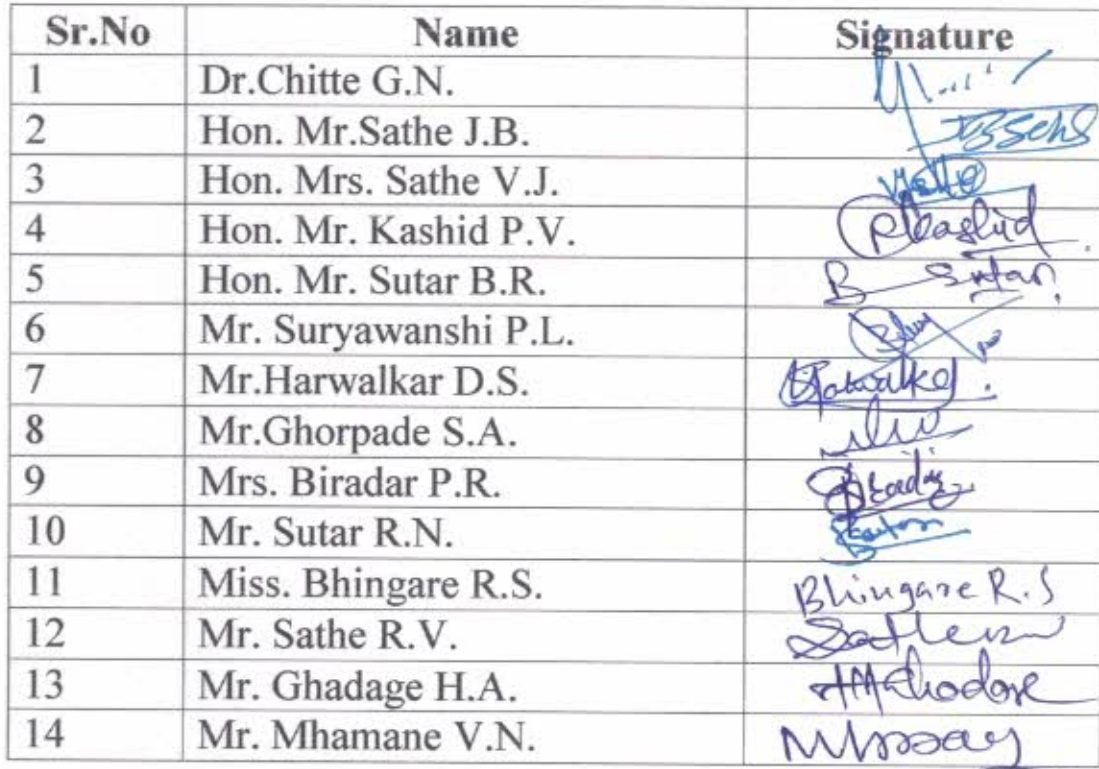 Sr.No Name Signature
1 Dr.Chitte G.N.
2 Hon. Mr.Sathe J.B.
3 Hon. Mrs. Sathe V.J.
4 Hon. Mr. Kashid P.V.
5 Hon. Mr. Sutar B.R. B Sutar
6 Mr. Suryawanshi P.L.
7 Mr.Harwalkar D.S.
8 Mr.Ghorpade S.A.
9 Mrs. Biradar P.R.
10 Mr. Sutar R.N.
11 Miss. Bhingare R.S. Bhingare R.S
12 Mr. Sathe R.V.
13 Mr. Ghadage H.A.
14 Mr. Mhamane V.N.